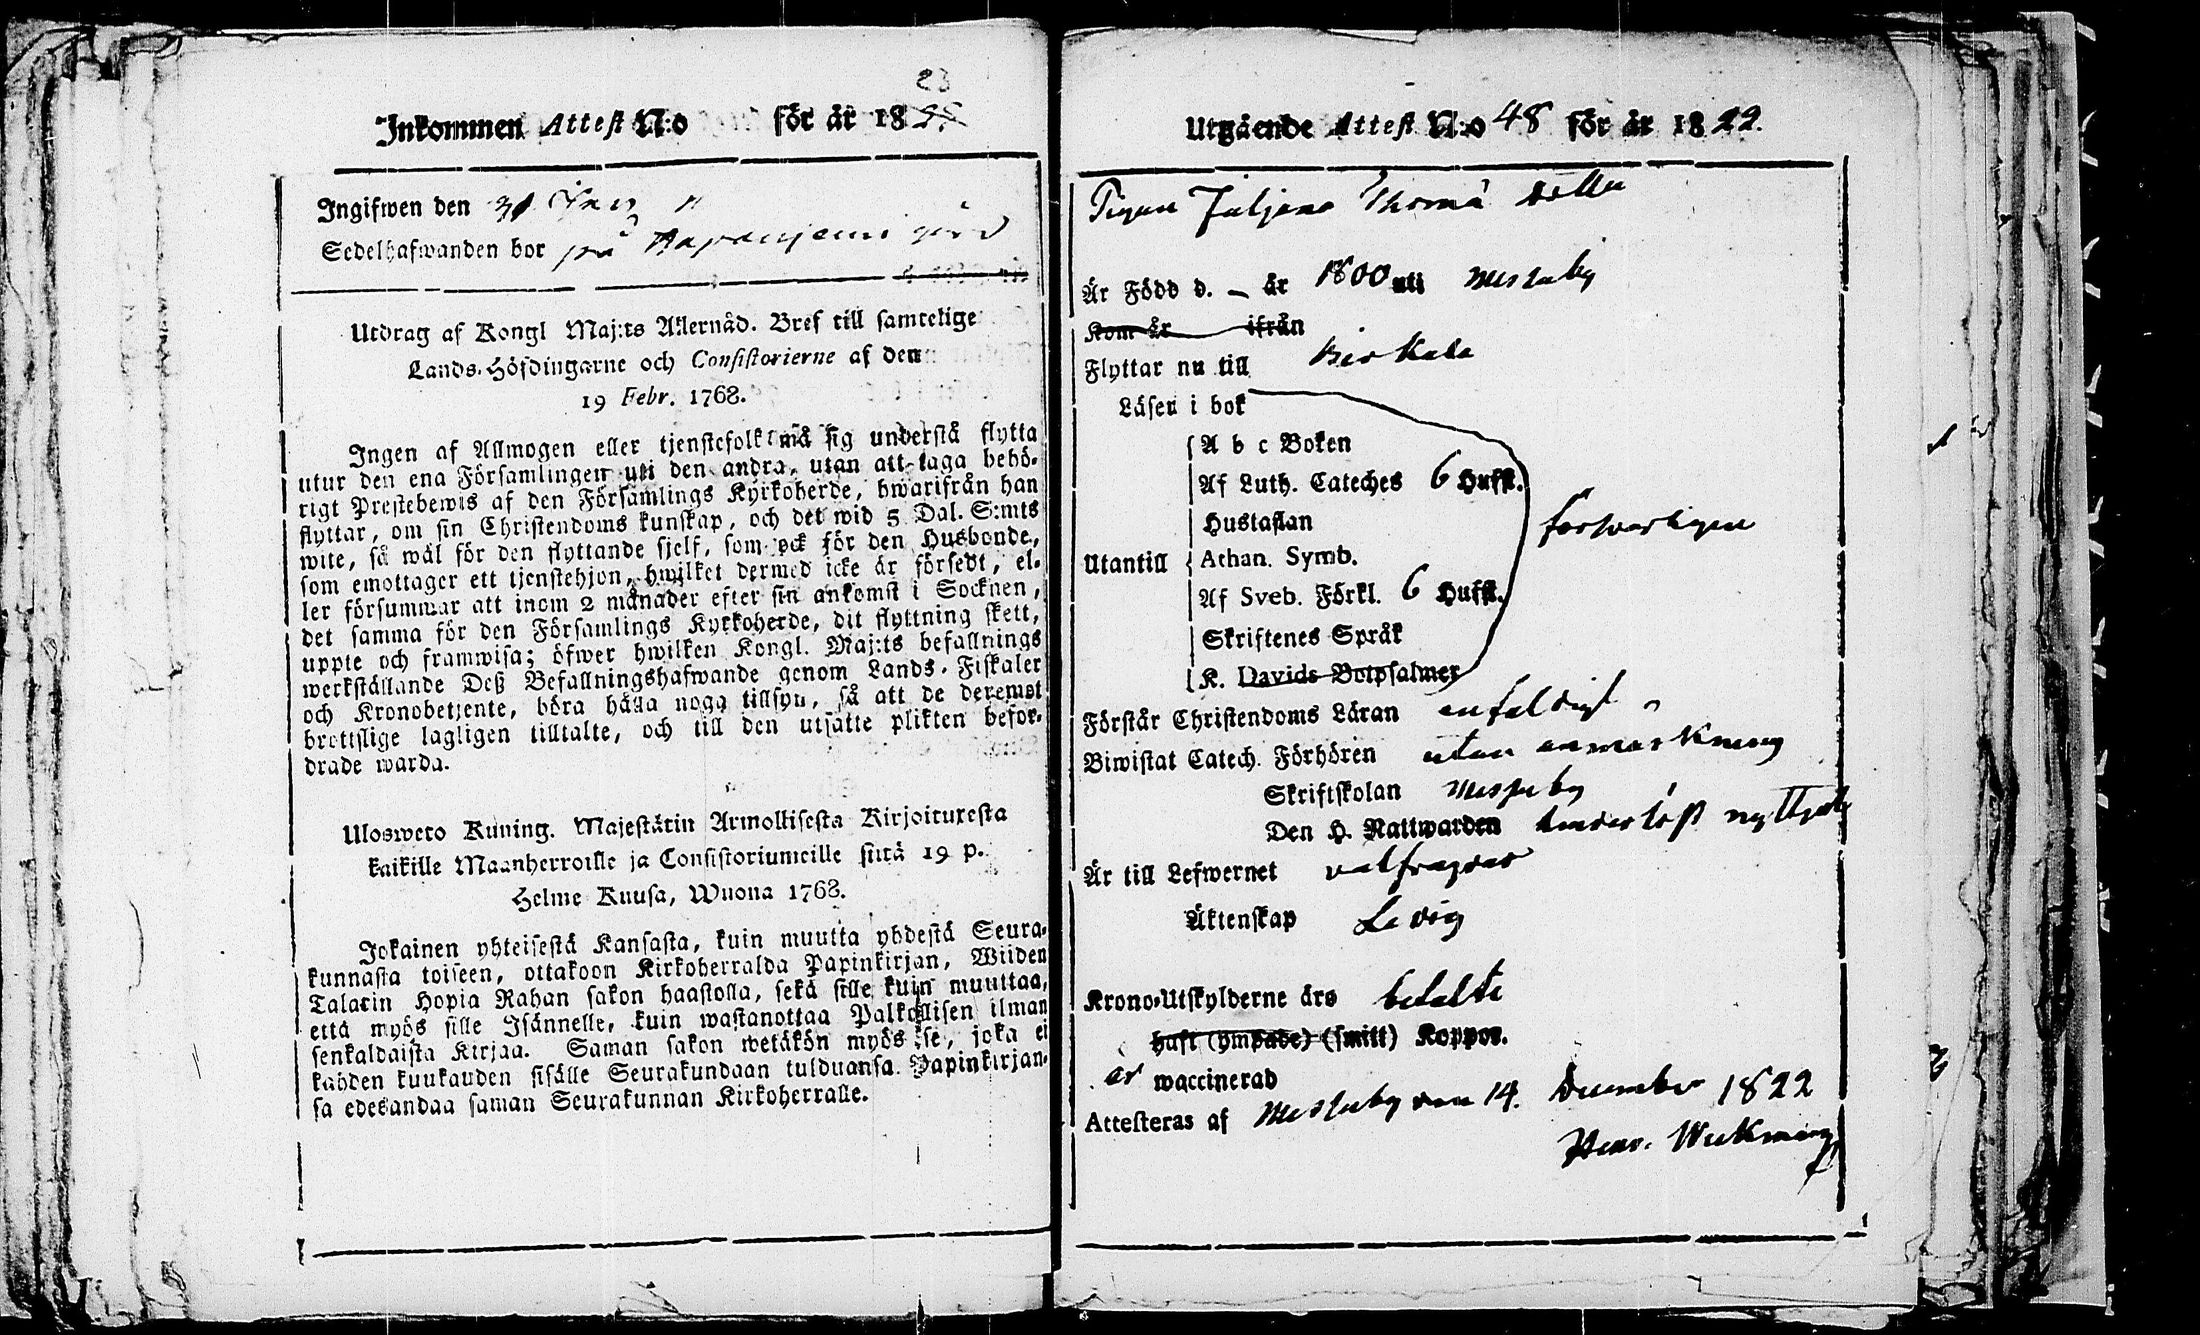 23
Inkommen Attest N:o för år 18
Ingifwen den
Sedelhafwanden bor på Haapaniemi gård
Utdrag af Kongl Maj:ts Allernåd. Bref till samtelige
Lands-Höfdingarne och Consistorierne af den
19 Febr. 1768.
Ingen af Allmogen eller tjenstefolk må sig understå flytta
utur den ena Församlingen uti den andra, utan att taga behö-
rigt Prestebewis af den Församlings Kyrkoherde, hwarifrån han
flyttar, om sin Christendoms kunskap, och det wid 5 Dal. S:mts
wite, så wäl för den flyttande sjelf, som ock för den Husbonde,
som emottager ett tjenstehjon, hwilket dermed icke är försedt, el-
ler försummar att inom 2 månader efter sin ankomst i Socknen,
det samma för den Församlings Kyrkoherde, dit flyttning skett,
uppte och framwisa; öfwer hwilken Kongl. Maj:ts befallnings
werkställande Deß Befallningshafwande genom Lands-Fiskaler
och Kronobetjente, böra hålla noga tillsyn, så att de deremot
brottslige lagligen tilltalte, och till den utsatte plikten befor-
drade warda.
Ulosweto Kuning. Majestätin Armollisesta Kirjoituxesta
kaikille Maanherroille ja Consistoriumeille siitä 19 p.
Helme Kuusa, Wuona 1768.
Jokainen yhteisestä Kansasta, kuin muutta yhdestä Seura-
kunnasta toiseen, ottakoon Kirkoherralda Papinkirjan, Wiiden
Talarin Hopia Rahan sakon haastolla, sekä sille kuin muuttaa,
että myös sille Isännelle, kuin wastanottaa Palkollisen ilman
senkaldaista Kirjaa. Saman sakon wetäkön myös se, joka ei
kahden kuukauden sisälle Seurakundaan tulduansa Papinkirjan-
sa edesandaa saman Seurakunnan Kirkoherralle.
Utgående Attest N:o 48 för år 1822.
Pigan Juljana Thomä dotter
Är Född d. – år 1800 uti Messuby
Kom år ifrån
Flyttar nu till Birkala
Läser i bok
A b c Boken
Af Luth. Cateches 6 Hufst.
Hustaflan
försvarligen
Utantill Athan. Symb.
Af Sveb. Förkl. 6 Hufst.
Skriftenes Språk
K. Davids Botpsalmer
Förstår Christendoms Läran enfaldigt
Biwistat Catech. Förhören utan anmärkning
Skriftskolan Messuby
Den H. Nattwarden nyttjat
Är till Lefwernet välfrägdad
Äktenskap Ledig
Krono-Utskylderne äro betalte
haft (ympade) (smitt) Koppor.
är waccinerad
Attesteras af Messuby den 14. December 1822